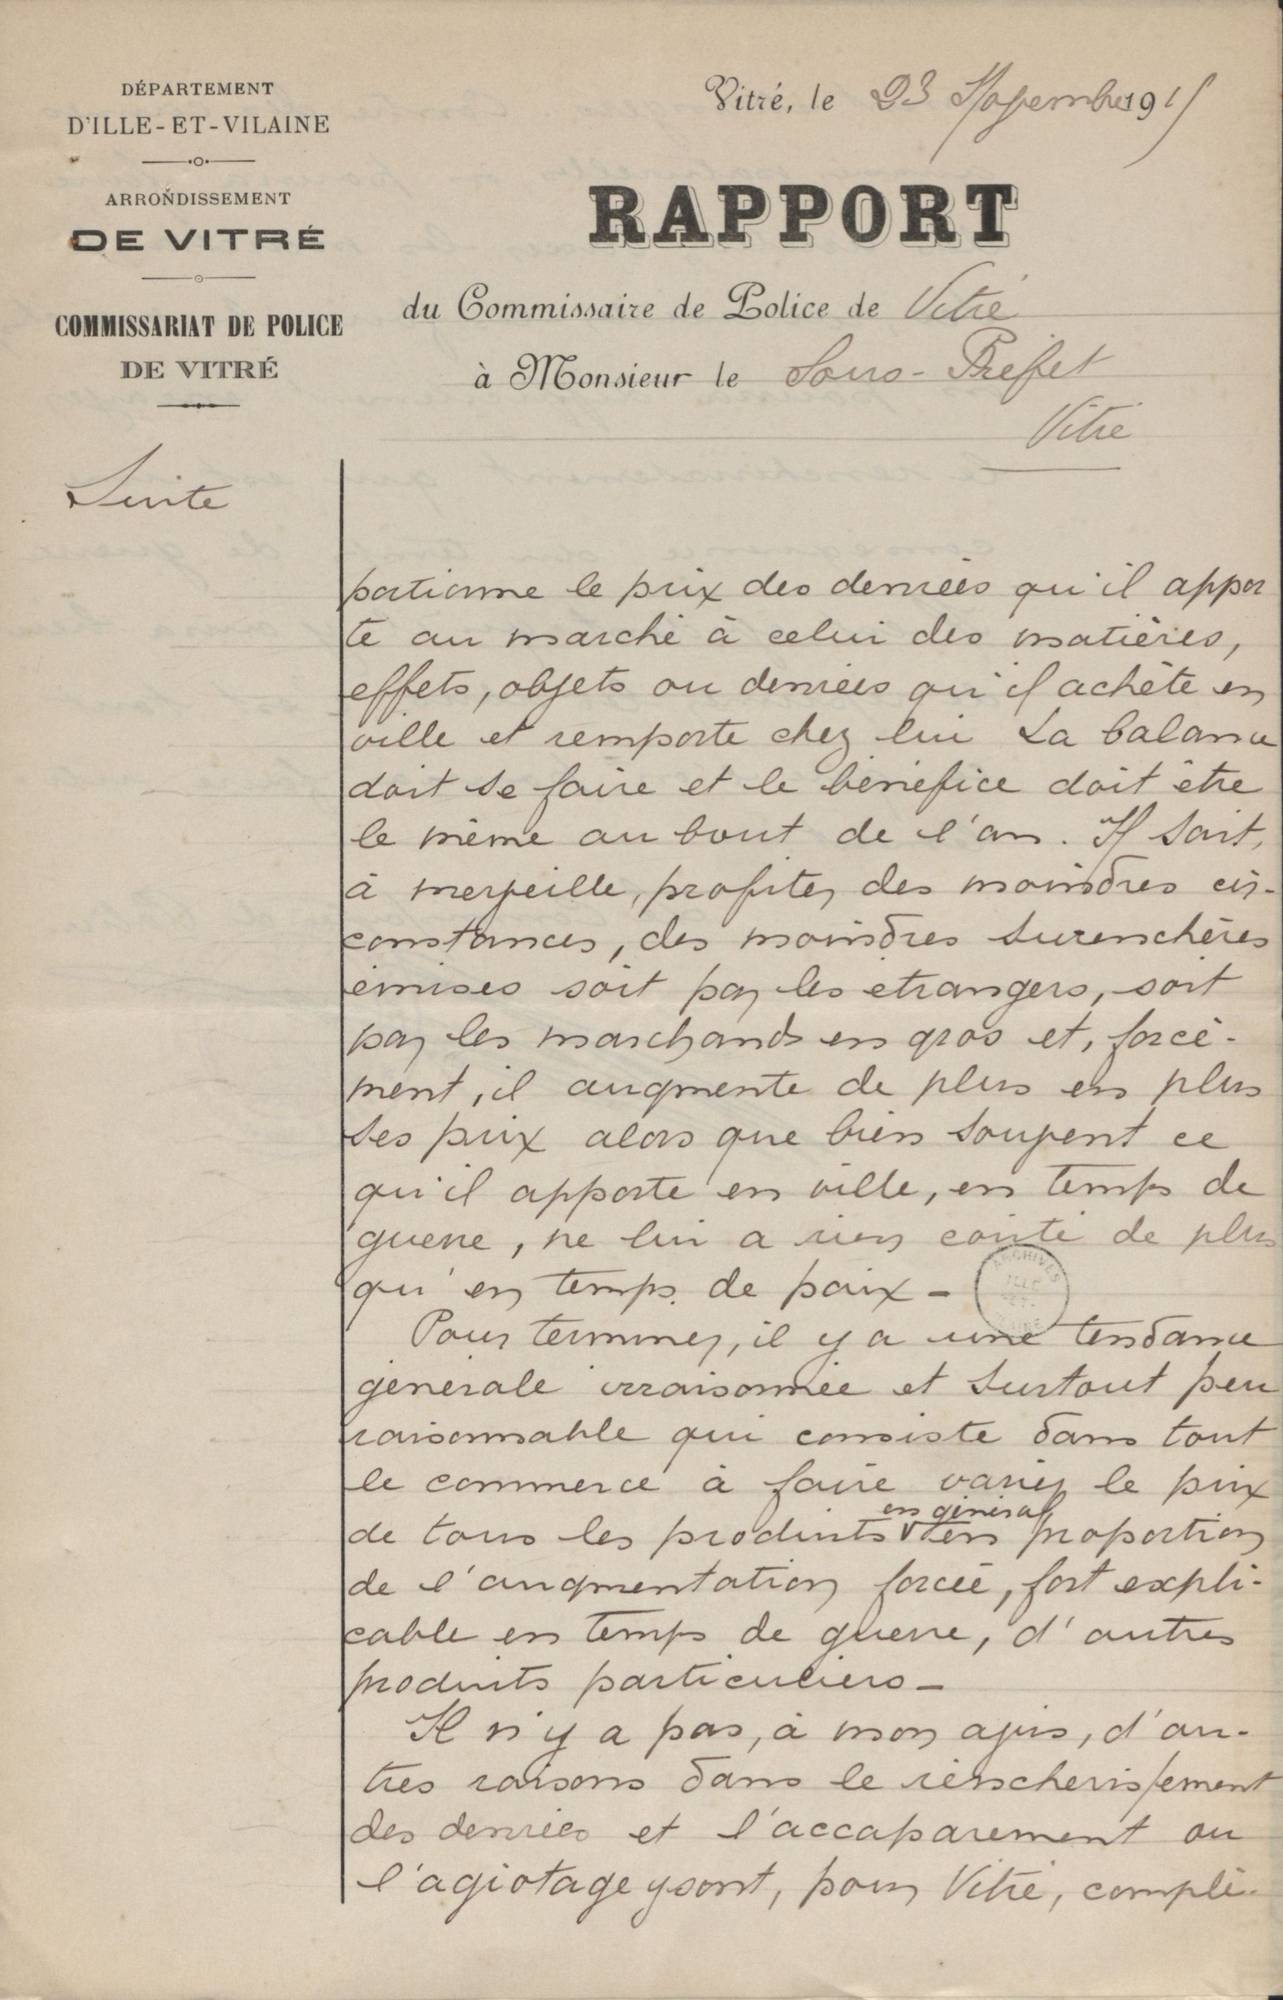 DÉPARTEMENT
D'ILLE-ET-VILAINE
ARRONDISSEMENT
DE VITRÉ
COMMISSARIAT DE POLICE
DE VITRÉ
Suite
Vitré, le 23 Novembre 1915
RAPPORT
du Commissaire de Police de Vitré
à Monsieur le Sous-Préfet
Vitré
portionne le prix des denrées qu'il appor
te au marché à celui des matières,
effets, objets ou denrées qu'il achète en
ville et remporte chez lui La balance
doit se faire et le bénéfice doit être
le même au bout de l'an. Il sait,
à merveille, profiter des moindres cir-
constances, des moindres surenchères
émises soit par les étrangers, soit
par les marchands en gros et, forcé-
ment, il augmente de plus en plus
ses prix alors que bien souvent ce
qu'il apporte en ville, en temps de
guerre, ne lui a rien coûté de plus
qu'en temps de paix -
Pour terminer, il y a une tendance
générale irraisonnée et surtout peu
raisonnable qui consiste dans tout
le commerce à faire varier le prix
en général
de tous les produits en proportion
de l'augmentation forcée, fort expli-
cable en temps de guerre, d'autres
produits particuliers -
Il n'y a pas, à mon avis, d'au-
tres raisons dans le renchérissement
des denrées et l'accaparement ou
l'agiotage y sont, pour Vitré, complè-
ARCHIVES